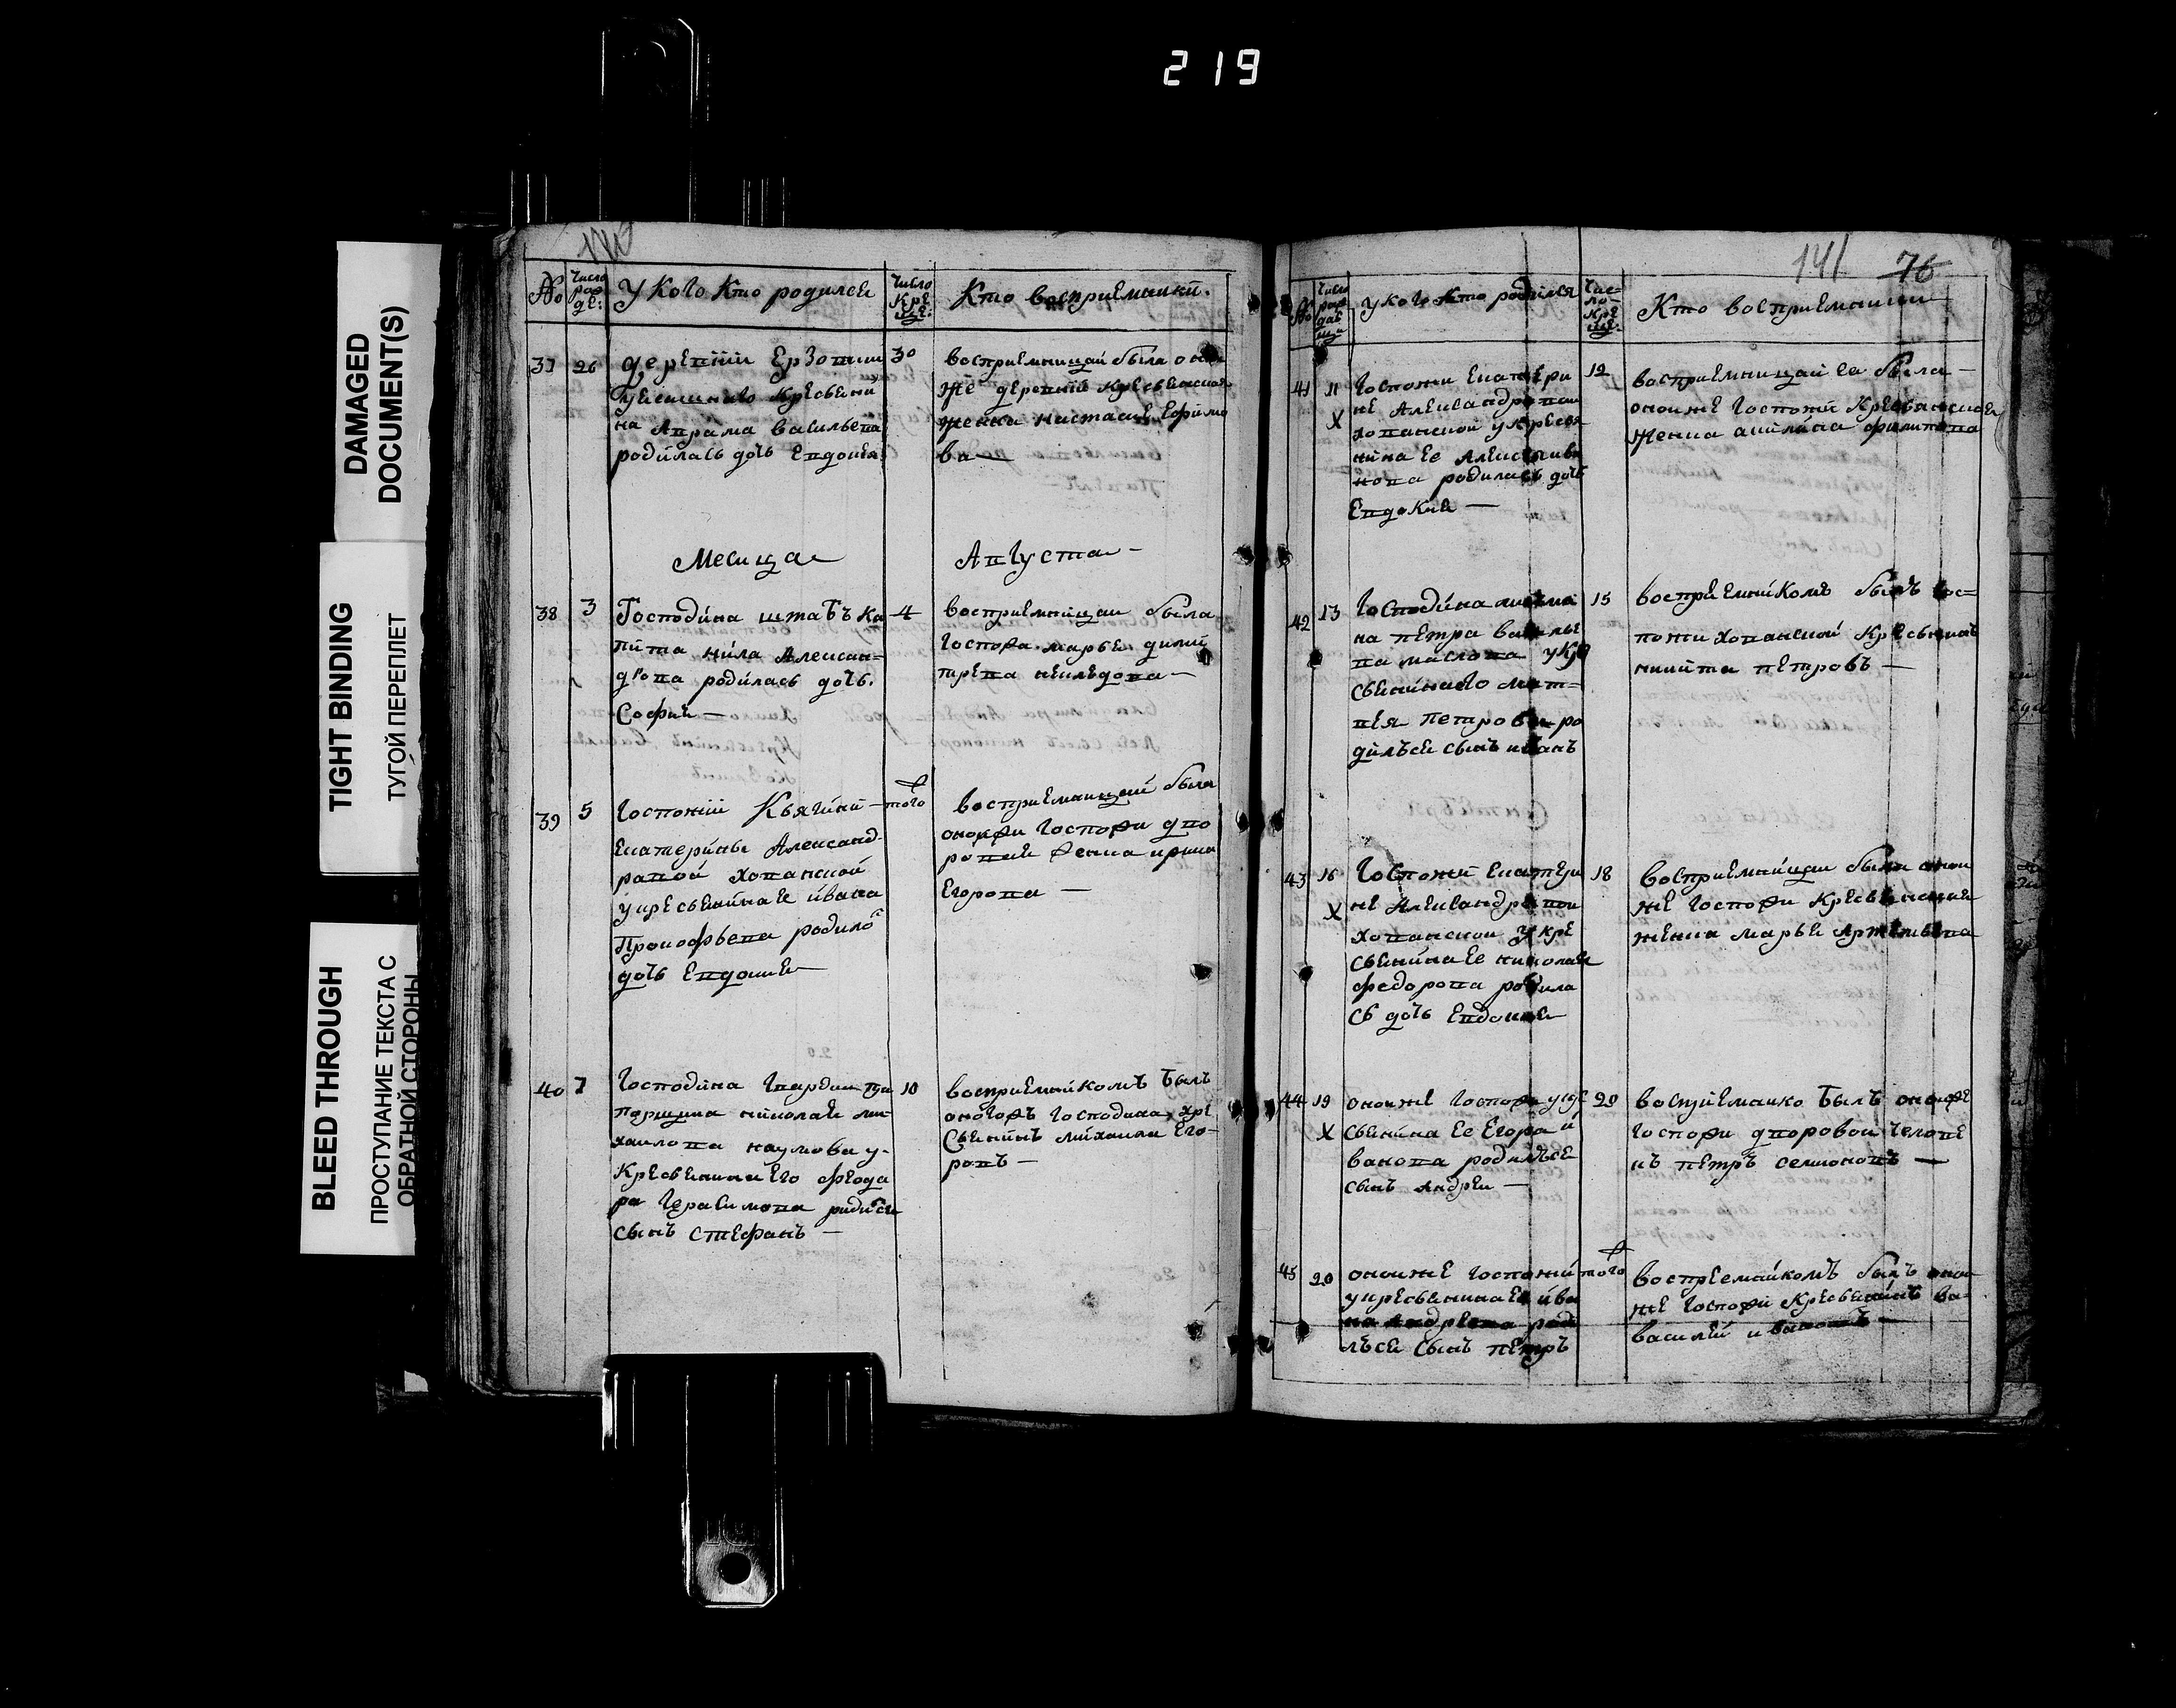 219
DAMAGED
DOCUMENT(S)
TIGHT BINDING
ТУГОЙ ПЕРЕПЛЕТ
BLEED THROUGH
ПРОСТУПАНИЕ ТЕКСТА С
ОБРАТНОЙ СТОРОНЫ
140
№
Число
рож
де:
У Кого Кто родился
Число
Кре
ще:
Кто восприемники.
37 26
деревни
на Аврама васильева
родилась дочь Евдокея
30
восприемницай была
же деревни
женка настасия Ефимо
ва —
Месица
Августа —
38 3
Господина штабъ Ка
пита нила Алексан=
дрова родилась дочь.
София —
4
восприемницаи была
Госпожа марья дими
трева
39 5
Госпожи Княгини —
Екатерины Александ
ровой хованской
у кресьянина ее ивана
Прокофьева родило
дочь Евдокия
того
восприемницай была
оной же Госпожи дво
ровая женка ирина
Егорова —
40 7
Господина Гвардии пра
порщика николая ми
хаилова наумова у-
Кресьянина Его Феодо
ра Герасимова
сынъ стефанъ —
10
восприемникомъ былъ
оногожъ Господина кре
сьянинъ михаила Его-
ровъ —
141 76
№
Число
У кого кто родился
Чис-
ло-
Кре
ще:
Кто восприемники
41 11
X
Госпожи Екатери
не Александровои
хованской у кресья
нина ее Алексея ива
нова родилась дочь
Евдокия —
12
восприемницай ее была —
оной же Госпожи Кресьянская
женка акилина филипова
42 13
Господина
на петра василье
ва маслова у кре
сьянина Его мат=
вея петрова ро
дилься сынъ иванъ
15
восприемникомъ былъ гос=
пожи хованской Кресьянинъ
никита петровъ —
43 16
X
Госпожи Екатери
не Александровои
хованскои у кре
сьянина ее николая
федорова родила
сь дочь Евдокия
18
восприемницаи была оной
же Госпожи Кресьянская
женка марья Артемьева
44 19
X
оной же Госпожи у кре
сьянина ее Егора и
ванова родилься
сынъ Андреи —
20
восприемнико былъ оной же
Госпожи дворовой челове
къ петръ семионовъ —
45 20
оной же госпожи
у кресьянина ея ива
на Андреева роди
лься сынъ петръ
того
восприемникомъ былъ оной
же Госпожи Кресьянинъ ва-
василей ивановъ —